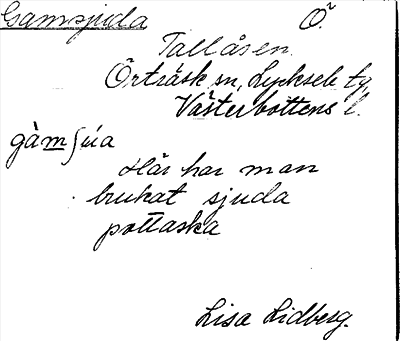 Gamsjuda Ö.
Tallåsen
Örträsk sn, Lycksele tg,
Västerbottens l.
gàmʃúa
Här har man
brukat sjuda
pottaska
Lisa Lidberg.